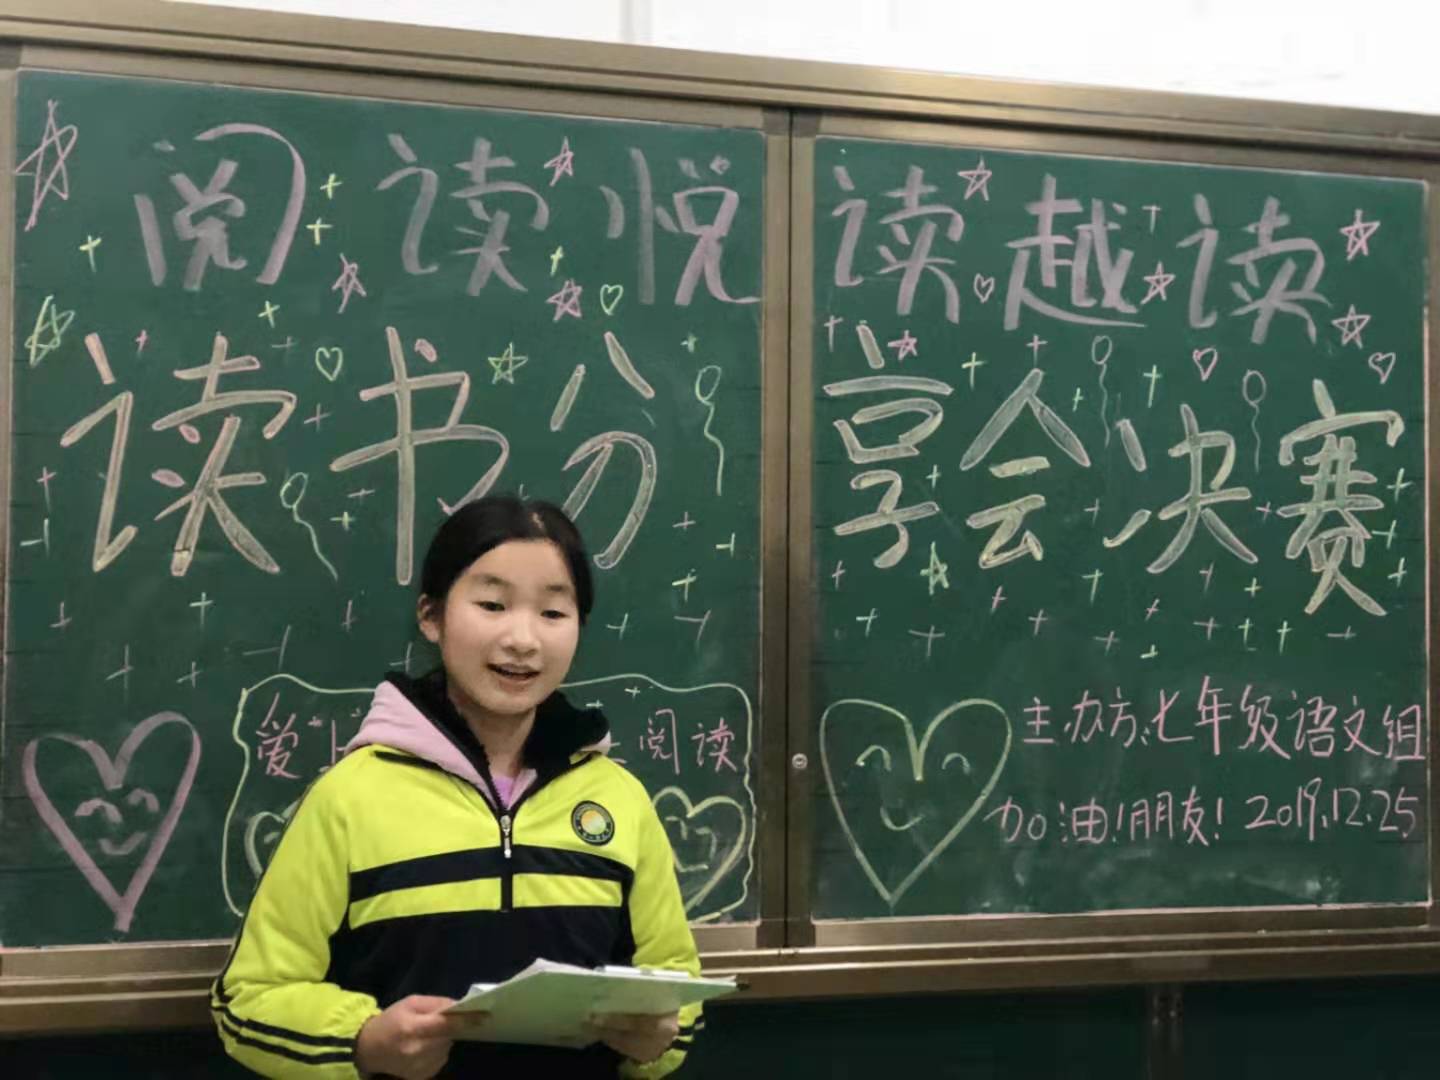 阅读悦读越读
读书分享会决赛
爱上 阅读
主办方:七年级语文组
加油!朋友! 2019.12.25